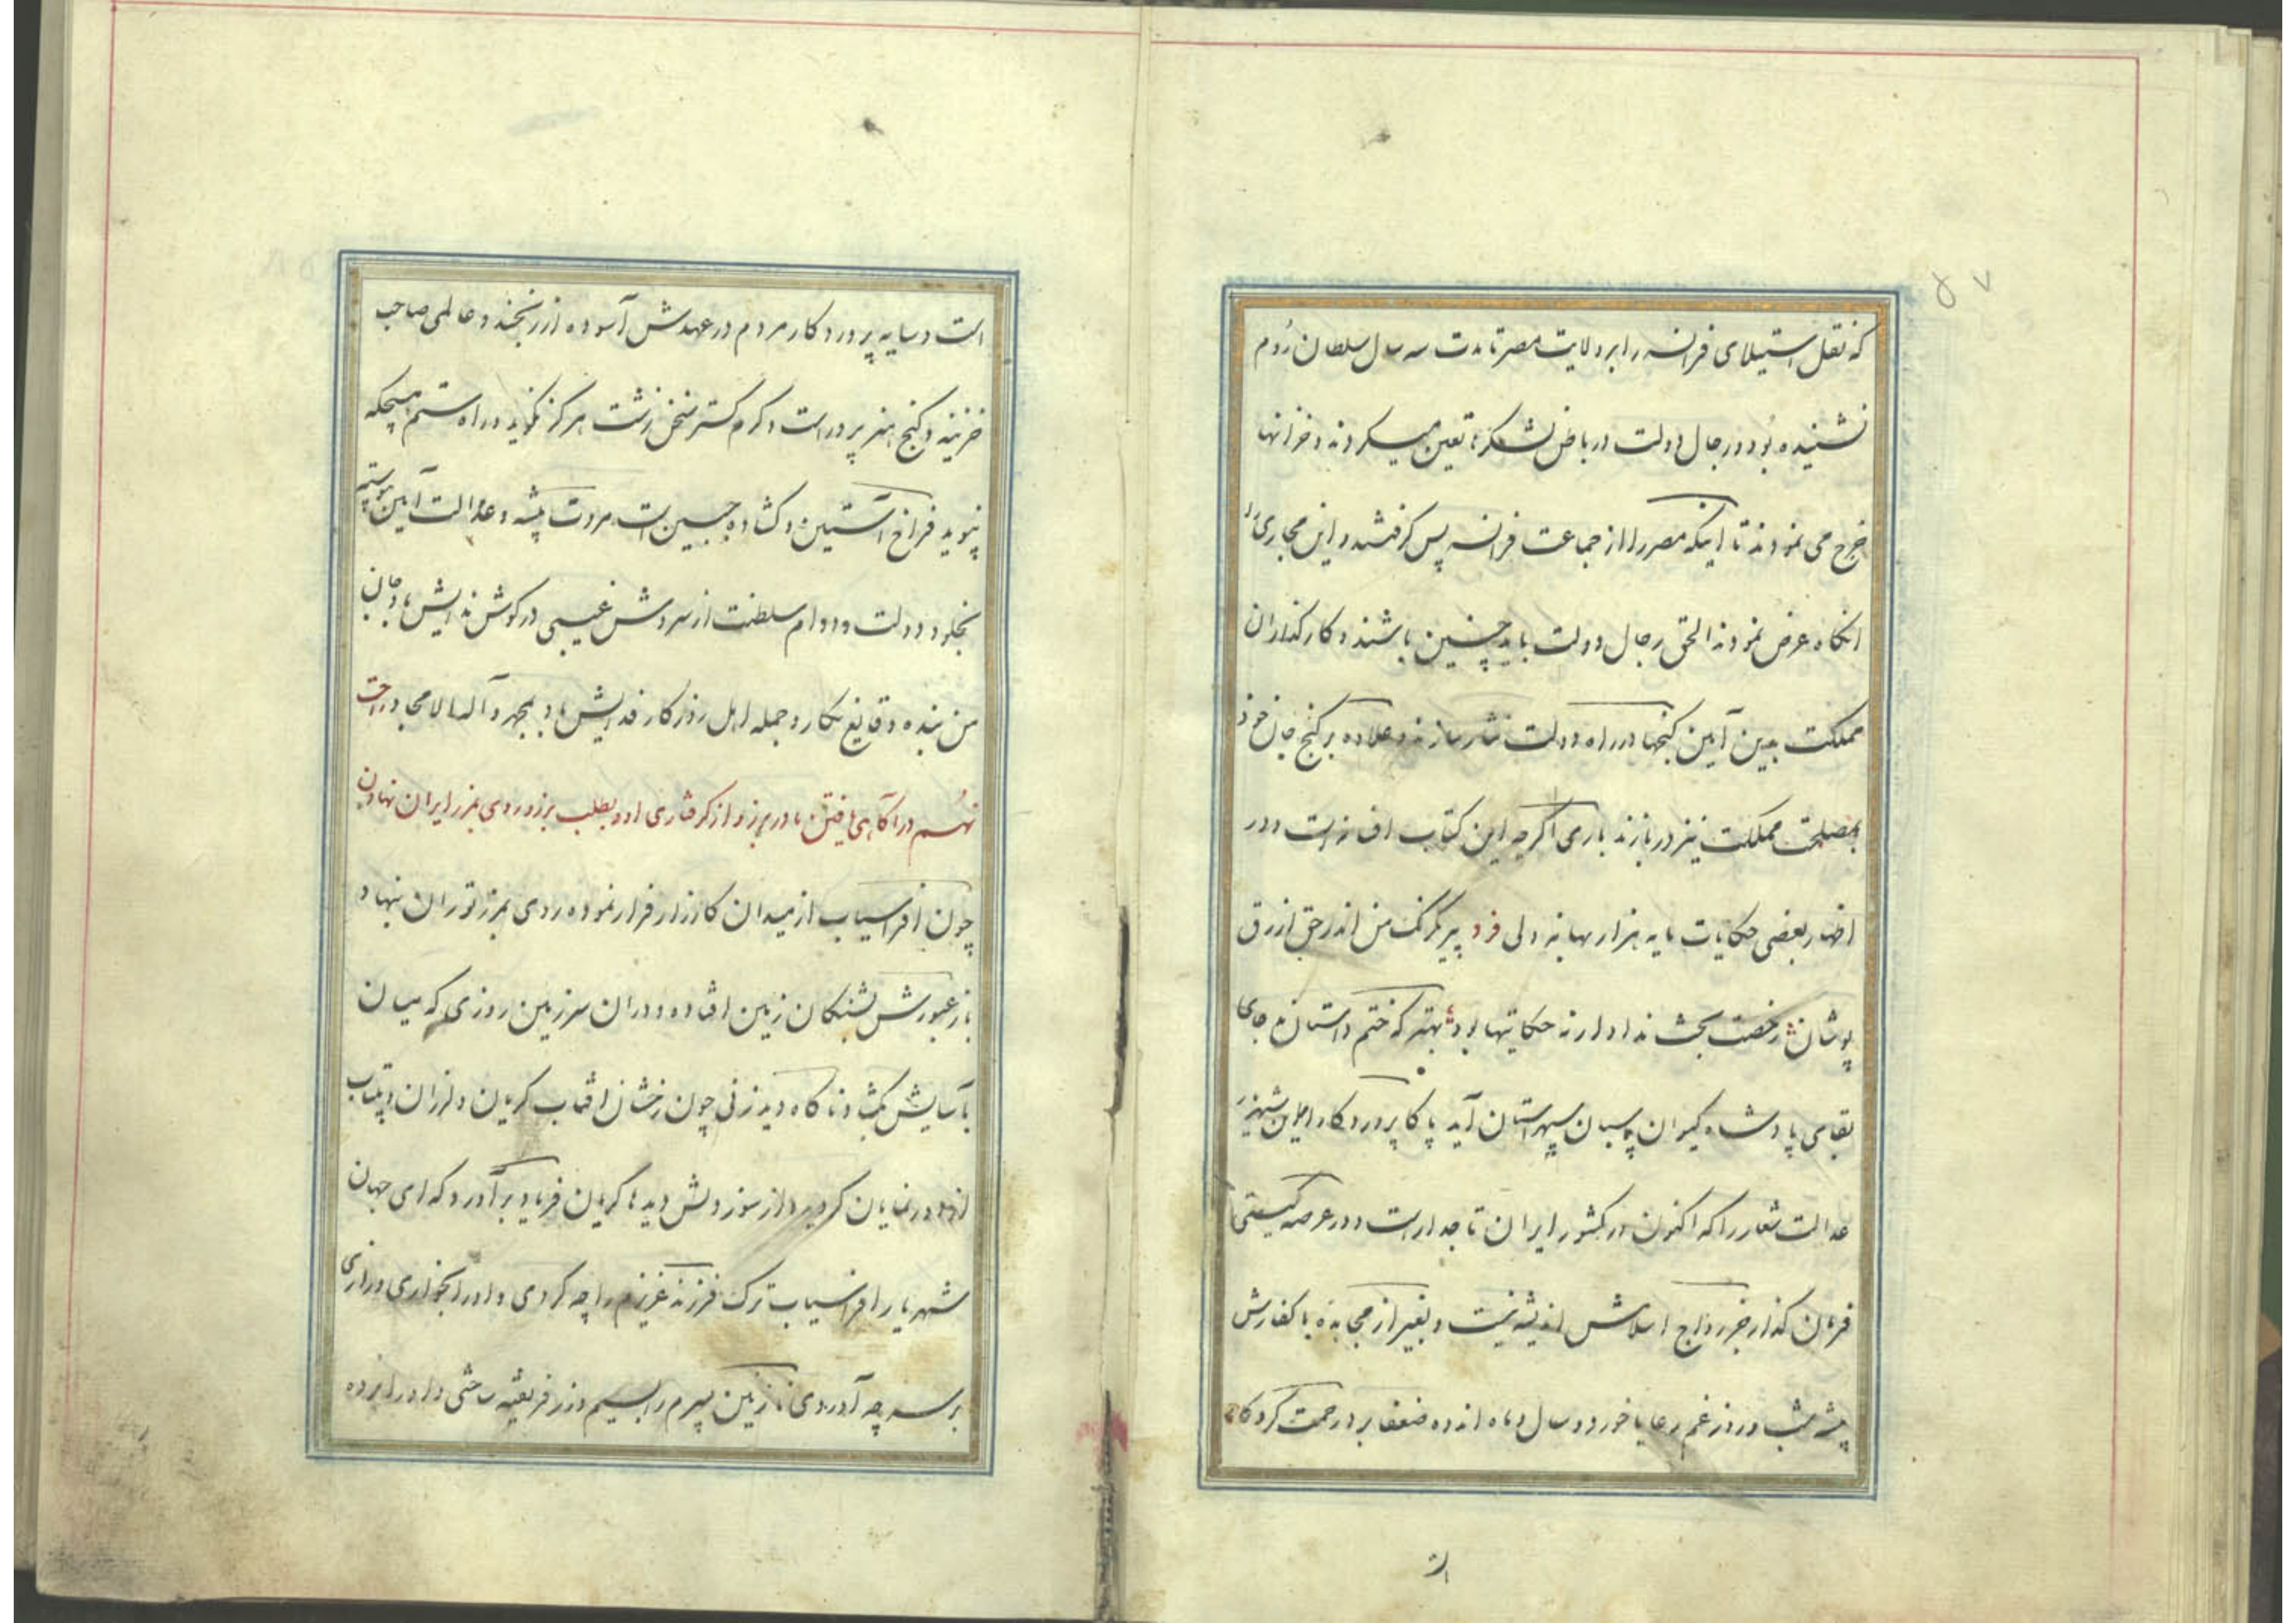 ۵۷
که نقل استیلای فرانسه را بر ولایت مصر تا مدت سه سال سلطان رُوم
نشنیده بُود و رجال دولت در باطن لشکرها تعین میکردند و خزانها
خرج می نمودند تا اینکه مصر را از جماعت فرانسه پس کرفتند و این مجاری را
انکاه عرض نمودند الحق رجال دولت باید چنین باشند و کارکذاران
مملکت بدین آیین کنجها در راه دولت نثار سازند و علاوه بر کنج جان خود
بمصلحت مملکت نیز دربازند باری اکرچه این کتاب افسانه است و در
اظهار بعضی حکایات مایه هزار بهانه ولی فرد پیر کرنک من اندر حق ازرق
پوشان رخصت بحث نداد ار نه حکایتها بود بهتر که ختم داستان دعای
بقای پادشاه کیوان پاسبان سپهر استان آید پاکا پروردکارا این شهریار
عدالت شعار را که اکنون در کشور ایران تاجدار است و در عرصه کیتی
فرمان کذار جز رواج اسلامش اندیشه نیست و بغیر از مجاهده با کفارش
پیشه شب و روز غم رعایا خورد و سال و ماه انده ضعفا بر در رحمت کردکار
است و سایه پروردکار مردم در عهدش آسوده از رنجند و عالمی صاحب
خزینه و کنج هنرپرور است و کرم کستر سخن زشت هرکز نکوید و راه ستم هیچکه
نپوید فراخ آستین و کشاده جبین است مروت پیشه و عدالت آیین پیوسته
بخلود دولت و دوام سلطنت از سروش غیبی در کوش ندایش باد و جان
من بنده وقایع نکار و جمله اهل روزکار فدایش باد بمحمد و آله الامجاد
نهُم در آکاهی یافتن مادر برزو از کرفتاری او و بطلب برزو روی بمرز ایران نهادن
چون افراسیاب از میدان کارزار فرار نموده روی بمرز توران بنهاد
باز عبورش بشنکان زمین افتاده و در ان سرزمین روزی که میان
بآسایش بکشاد ناکاه دید زنی چون رخشان افتاب کریان و لرزان و بیتاب
از دور نمایان کردید و از سوز دلش دیده ها کریان فریاد برآورد که ای جهان
شهریار افراسیاب ترک فرزند عزیزم را چه کردی و او را بخواری و زاری
بر سر چه آوردی نازنین پسرم را بسیم و زر فریفته ساختی و او را برده
است